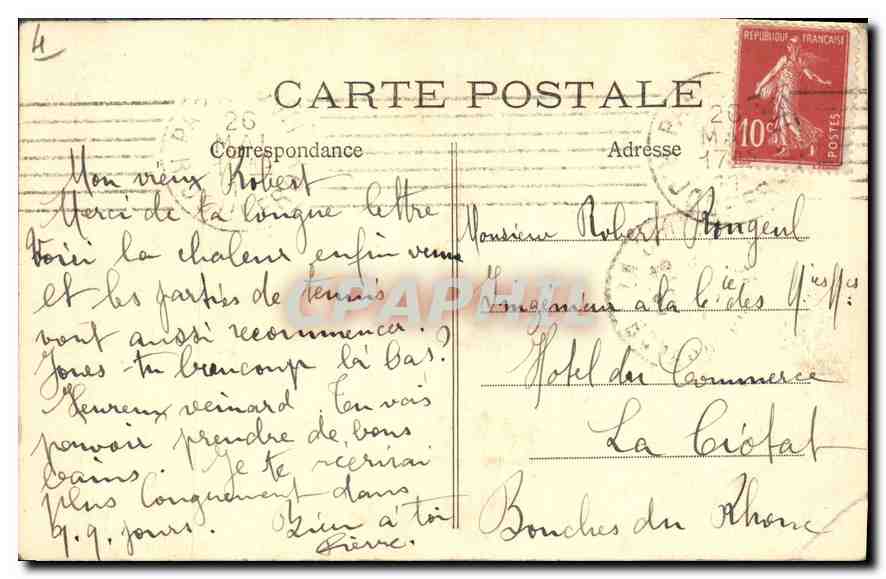 4
CARTE POSTALE
RÉPUBLIQUE FRANÇAISE
10c
POSTES
26
26
17
Correspondance
Adresse
Mon vieux Robert
Merci de ta longue lettre
Voici la chaleur enfin venue
et les parties de tennis
vont aussi recommencer.
Joues-tu beaucoup là bas?
Heureux veinard Tu vas
pouvoir prendre de bons
bains. Je te récrirai
plus longuement dans
q.q. jours. Bien à toi
Pierre.
Monsieur Robert Rougeul
Ingénieur a la Cie des Mies Mes
Hotel du Commerce
La Ciotat
Bouches du Rhone
CPAPHIL